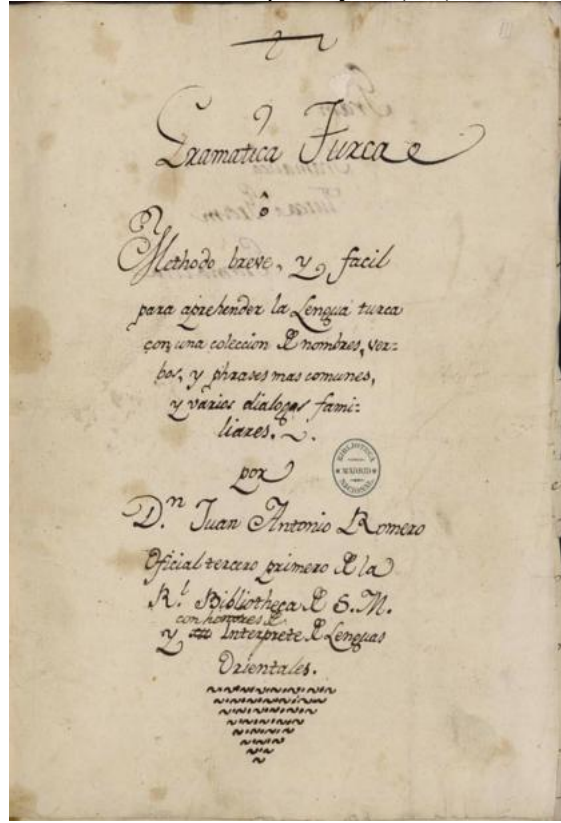 Gramatica Turca
ô
Methodo breve, y facil
para aprehender la Lengua turca
con una coleccion de nombres, ver=
bos, y phrases mas comunes,
y varios dialogos fami=
liares.
por
D.n Juan Antonio Romero
Oficial tercero primero de la
R.l Bibliotheca de S. M.
con honores de
y Interprete de Lenguas
Orientales.
BIBLIOTECA
MADRID
NACIONAL